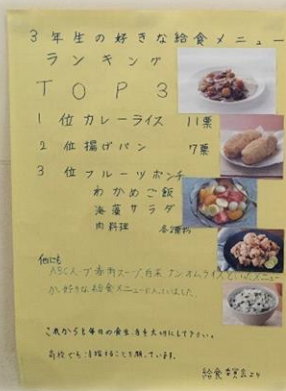 3年生の好きな給食メニュー
ランキング
TOP3
1位 カレーライス 11票
2位 揚げパン 7票
3位 フルーツポンチ
わかめご飯
海藻サラダ
肉料理 各2票
他にも
ABCスープ
オムライスといったメニュー
が好きな給食メニューに入っていました。
これからも毎日の食生活を大切にして下さい。
高校でも活躍することを願っています。
給食委員会より